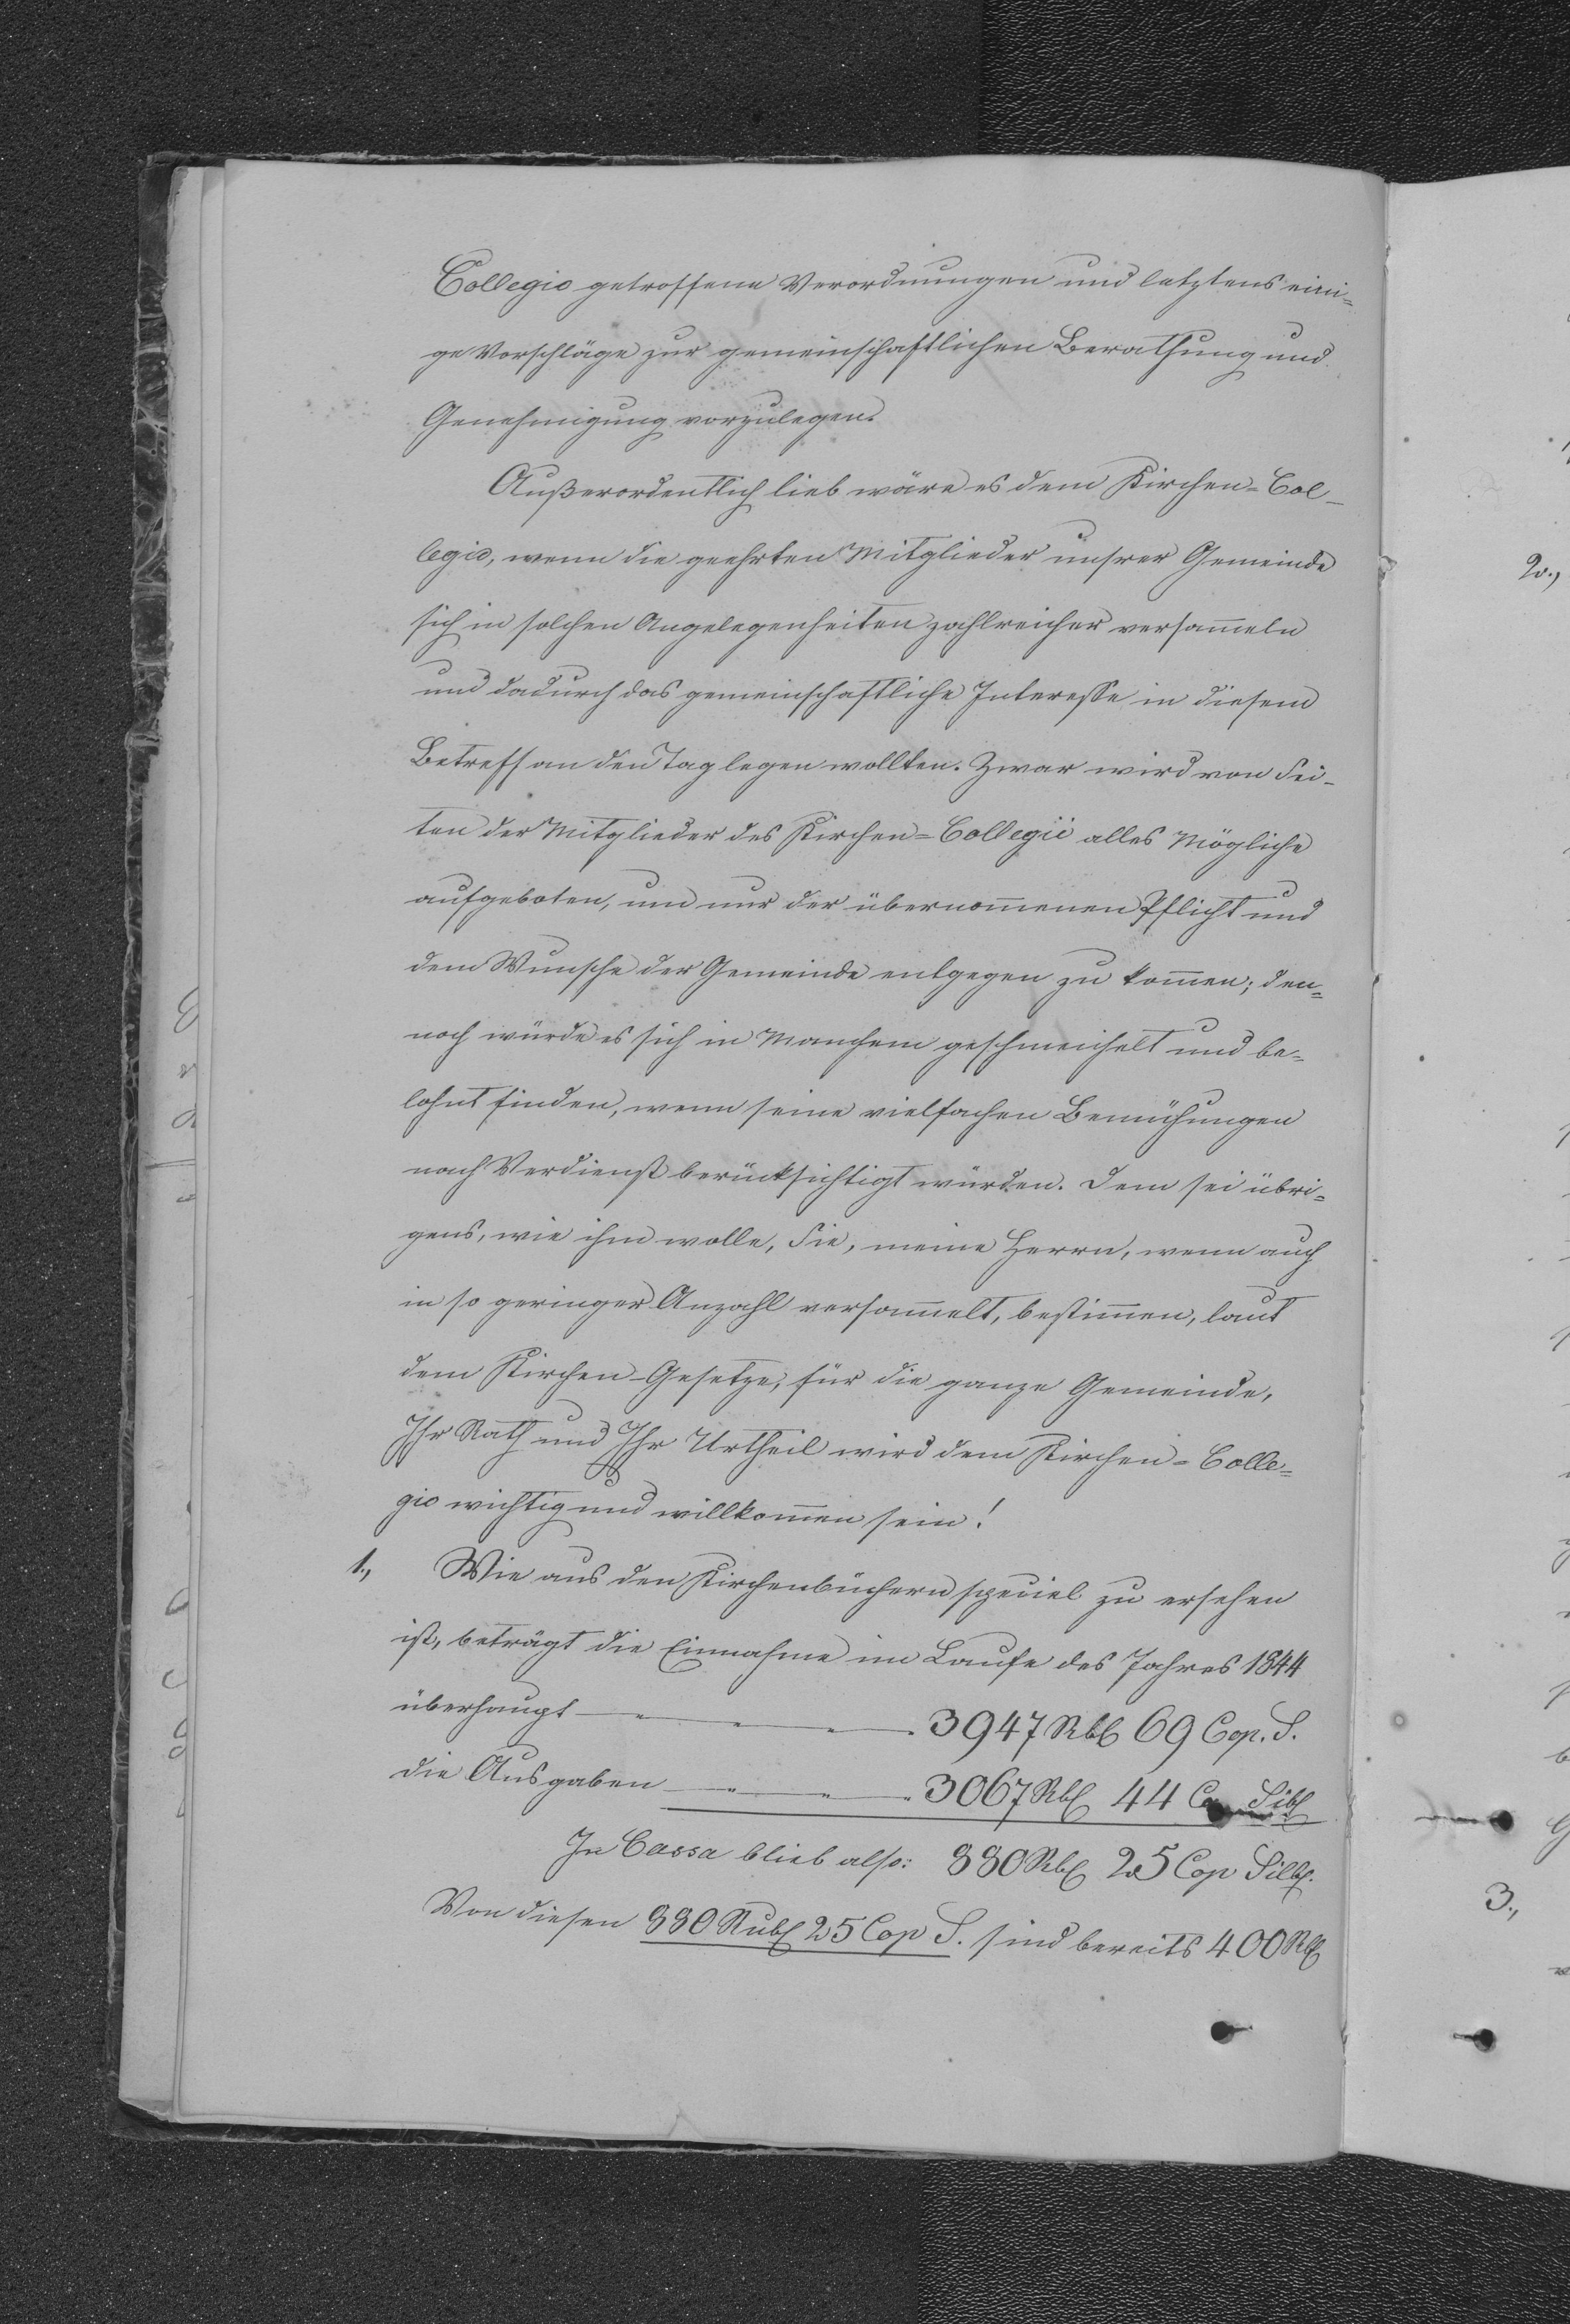 Collegio getroffene Verordnungen und letztens eini=
ge Vorschläge zur gemeinschaftlichen Berathung und
Genehmigung vorzulegen.
Außerordentlich lieb wäre es dem Kirchen=Col-
legio, wenn die geehrten Mitglieder unsrer Gemeinde
sich in solchen Angelegenheiten zahlreicher versam̅eln
und dadurch das gemeinschaftliche Interesse in diesem
Betreff an den Tag legen wollten. Zwar wird von Sei-
ten der Mitglieder des Kirchen=Collegii alles Mögliche
aufgeboten, um nur der übernom̅enen Pflicht und
dem Wunsche der Gemeinde entgegen zu kom̅en; den=
noch würde es sich in Manchem geschmeichelt und be=
lohnt finden, wenn seine vielfachen Bemühungen
nach Verdienst berücksichtigt würden. Dem sei übri=
gens, wie ihm wolle, Sie, meine Herrn, wenn auch
in so geringer Anzahl versam̅elt, bestim̅en, laut
dem Kirchen-Gesetze, für die ganze Gemeinde,
Ihr Rath und Ihr Urtheil wird dem Kirchen=Colle=
gio wichtig und willkom̅en sein!
1., Wie aus den Kirchenbüchern speciel zu ersehen
ist, beträgt die Einnahme im Laufe des Jahres 1844
überhaupt — " — " — " — 3947 Rbl 69 Cop. S.
die Ausgaben — " — " — " 3067 Rbl 44 Co Silb
In Cassa blieb also: 880 Rbl 25 Cop Silb.
Von diesen 880 Rubl 25 Cop S. sind bereits 400 Rbl
2.,
3.,